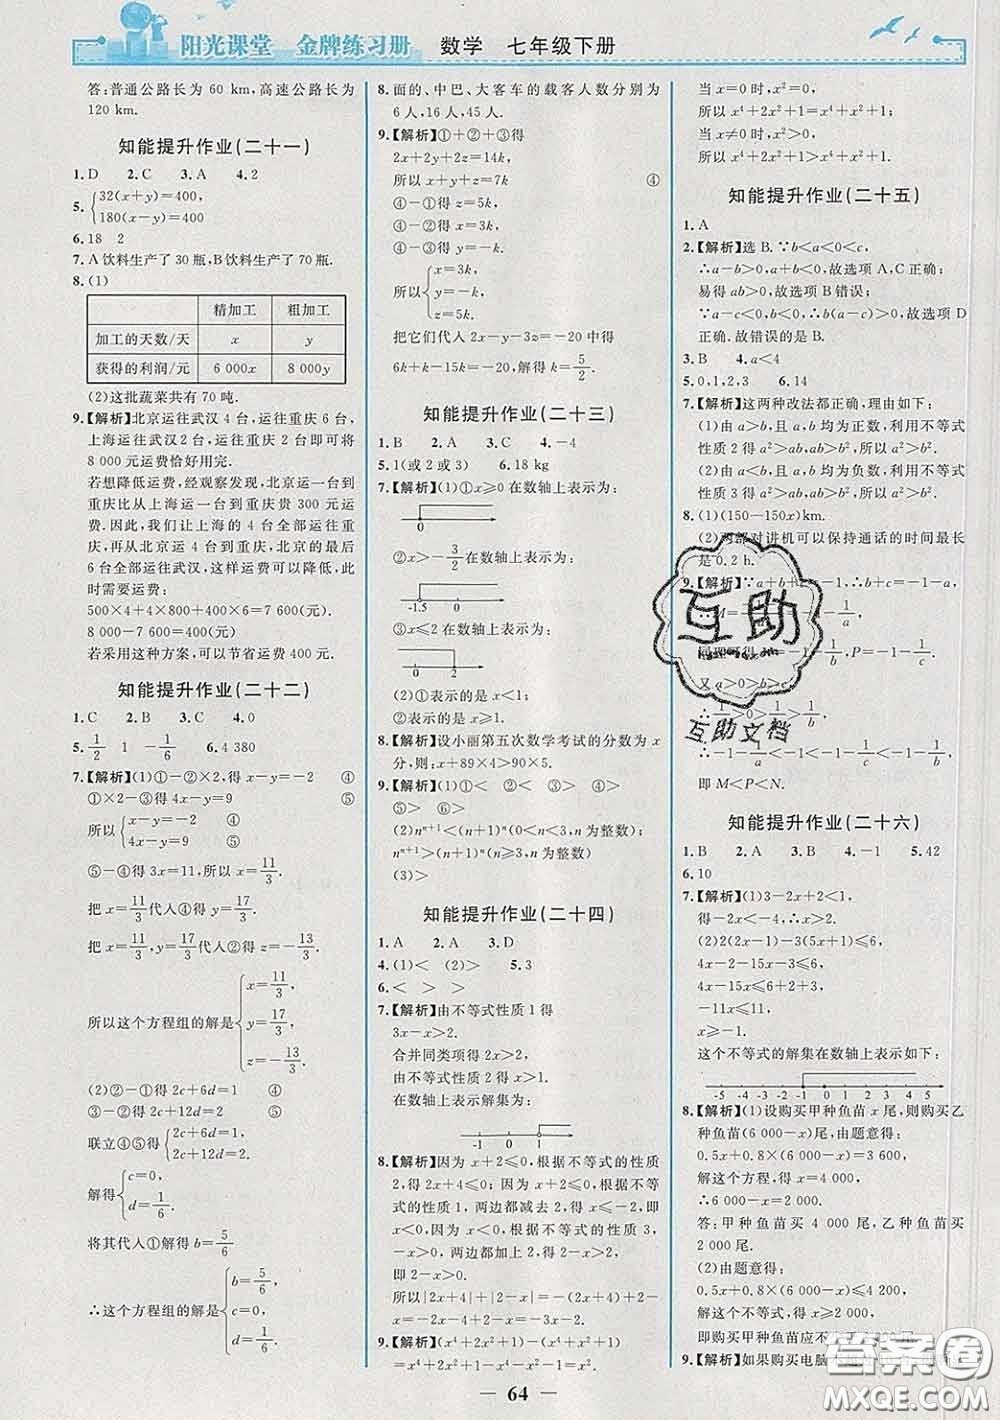 阳光课堂 金牌练习册 数学 七年级下册
答:普通公路长为 60 km,高速公路长为
120 km.
知能提升作业(二十一)
1.D 2.C 3.A 4.2
5.{32(x+y)=400,
180(x-y)=400
6.18 2
7.A饮料生产了30瓶,B饮料生产了70瓶.
8.(1)
精加工 粗加工
加工的天数/天 x y
获得的利润/元 6 000x 8 000y
(2)这批蔬菜共有 70 吨.
9.【解析】北京运往武汉 4 台,运往重庆 6 台,
上海运往武汉2台,运往重庆 2 台即可将
8 000元运费恰好用完.
若想降低运费,经观察发现,北京运一台到
重庆比从上海运一台到重庆贵 300 元运
费.因此,我们让上海的 4 台全部运往重
庆,再从北京运 4 台到重庆,北京剩下的
6台全部运往武汉,这样运费可以降低,此
时需要运费:
500×4+4×800+400×6=7 600(元).
8 000-7 600=400(元).
若采用这种方案,可以节省运费 400元.
知能提升作业(二十二)
1.C 2.B 3.C 4.0
5.1/2 1 -1/6 6.4 380
7.【解析】(1)①-②×2,得 x-y=-2 ④
①×2-③得4x-y=9 ⑤
所以{x-y=-2 ④
4x-y=9 ⑤
⑤-④得 3x=11,所以 x=11/3.
把 x=11/3代入④得 y=17/3.
把 x=11/3,y=17/3代入②得 z=-13/3.
所以这个方程组的解是{x=11/3,
y=17/3,
z=-13/3.
(2)②-①得 2c+6d=1 ④
③-②得 2c+12d=2 ⑤
联立④⑤得{2c+6d=1,
2c+12d=2.
解得{c=0,
d=1/6.
将其代入①解得 b=5/6
∴这个方程组的解是{b=5/6,
c=0,
d=1/6.
8.面的、中巴、大客车的载客人数分别为
6人,16人,45人.
9.【解析】①+②+③得
2x+2y+2z=14k,
所以 x+y+z=7k ④
④-①得 z=5k,
④-②得 x=3k,
④-③得 y=6k.
所以{x=3k,
y=6k,
z=5k.
把它们代入 2x-y-3z=-20 中得
6k-6k-15k=-20,解得 k=
知能提升作业(二十三)
1.B 2.A 3.C 4.-4
5.1(或2或3) 6.18 kg
7.【解析】(1)①x≥0在数轴上表示为:
0
②x>-3/2在数轴上表示为:
-1.5 0
③x≤2在数轴上表示为:
0 2
(2)①表示的是 x<1;
②表示的是 x≥1.
8.【解析】设小丽第五次数学考试的分数为 x
分,则:x+89×4>90×5.
9.【解析】(1)①< ②< ③> ④>
⑤> ⑥>
(2)nⁿ⁺¹<(n+1)ⁿ(0<n<3,n为整数);
nⁿ⁺¹>(n+1)ⁿ(n≥3,n为整数)
(3)>
知能提升作业(二十四)
1.A 2.A 3.D
4.(1)< (2)> 5.3
6.< >
7.【解析】由不等式性质1得
3x-x>2.
合并同类项得2x>2.
由不等式性质2得 x>1.
在数轴上表示解集为:
-1 0 1
8.【解析】因为 x+2≤0,根据不等式的性质
2,得2x+4≤0;因为 x+2≤0,根据不等
式的性质1,两边都减去2,得 x≤-2,即
x<0,因为 x<0,根据不等式的性质3,
-x>0,两边都加上2,得2-x>2>0,
即2-x>0.
所以|2x+4|+|2-x|=-(2x+4)+(2-
x)=-2x-4+2-x=-3x-2.
9.【解析】(x⁴+2x²+1)-(x⁴+x²+1)
=x⁴+2x²+1-x⁴-x²-1=x².
当 x=0时,x²=0,
所以 x⁴+2x²+1=x⁴+x²+1;
当 x≠0时,x²>0,
所以 x⁴+2x²+1>x⁴+x²+1.
知能提升作业(二十五)
1.A
2.【解析】选 B.∵b<a<0<c,
∴a-b>0,a+b<0,故选项A,C正确;
易得 ab>0,故选项B错误;
∵a-c<0,b<0,∴b(a-c)>0,故选项 D
正确.故错误的是 B.
3.B 4.a<4
5.0,1,2,3 6.14
7.【解析】这两种改法都正确,理由如下:
(1)由 a>b,且 a,b 均为正数,利用不等式
性质2得 a²>ab,ab>b²,所以 a²>b².
(2)由 a<b,且 a,b 均为负数,利用不等式
性质3得 a²>ab,ab>b²,所以 a²>b².
8.(1)(150-150x)km.
(2)两部对讲机可以保持通话的时间最长
是 0.2 h.
9.【解析】∵a+b+c=-1,∴b+c=-1-a,
-1-1/a
同理可得 -1-1/b,P=-1-1/c.
又 a>0>b>c,
∴1/a>0>1/c>1/b,
∴-1-1/a<-1<-1-1/c<-1-1/b,
即 M<P<N.
知能提升作业(二十六)
1.B 2.A 3.B 4.-1 5.42
6.10
7.【解析】(1)3-2x+2<1,
得-2x<-4,∴x>2.
(2)2(2x-1)-3(5x+1)≤6,
4x-2-15x-3≤6,
4x-15x≤6+2+3,
-11x≤11,
x≥-1.
这个不等式的解集在数轴上表示如下:
-5 -4 -3 -2 -1 0 1 2 3 4 5
8.【解析】(1)设购买甲种鱼苗 x 尾,则购买乙
种鱼苗(6 000-x)尾,由题意得:
0.5x+0.8×(6 000-x)=3 600,
解这个方程,得:x=4 000,
∴6 000-x=2 000,
答:甲种鱼苗买 4 000 尾,乙种鱼苗买
2 000尾.
(2)由题意得:
0.5x+0.8×(6 000-x)≤4 200,
解这个不等式,得:x≥2 000,
即购买甲种鱼苗应不少于2 000尾.
9.【解析】如果购买电脑
64
互助
互助文档
答案圈
MXQE.COM